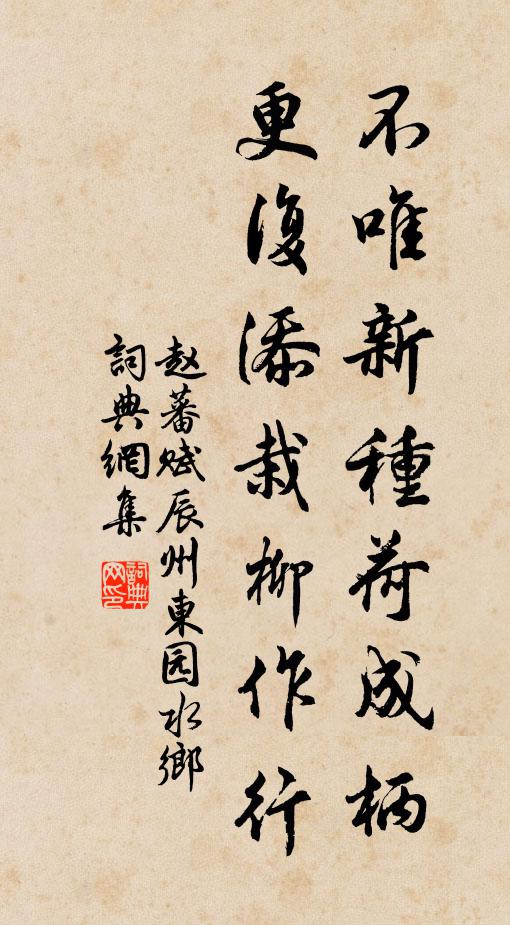 不唯新種荷成柄
更復添栽柳作行
赵蕃赋辰州東园水鄉
詞典網集
詞典网印